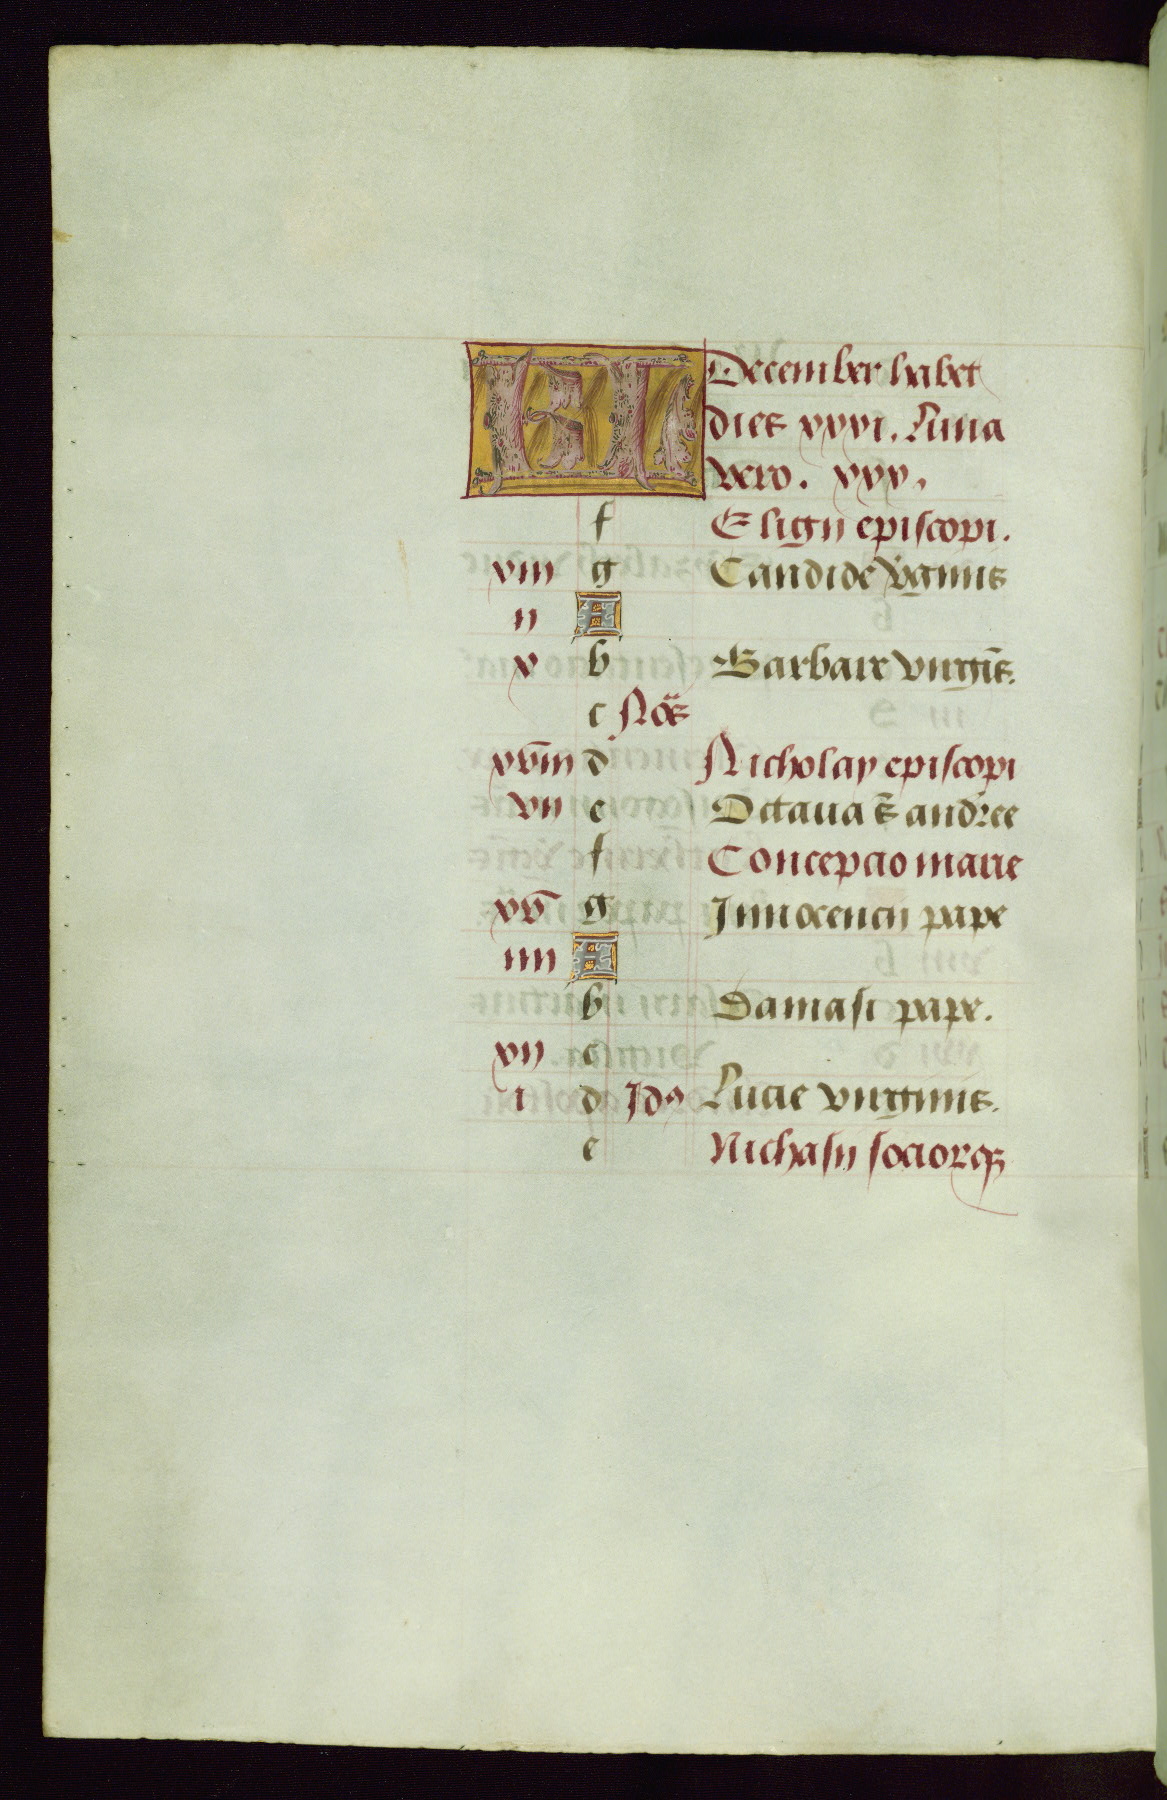 KL December habet
dies xxxi. Luna
vero. xxx.
f Eligii episcopi.
xiii g Candide v̾ginis
ii A
x b Barbare virgīs.
c Nōs
xviii d Nicholay episcopi
vii e Octaua s̄ andree
f Concepcio marie
xv g Innocencii pape
iiii A
b Damasi pape.
xii c
i d Idꝯ Lucie virginis.
e Nichasii sociorqꝫ